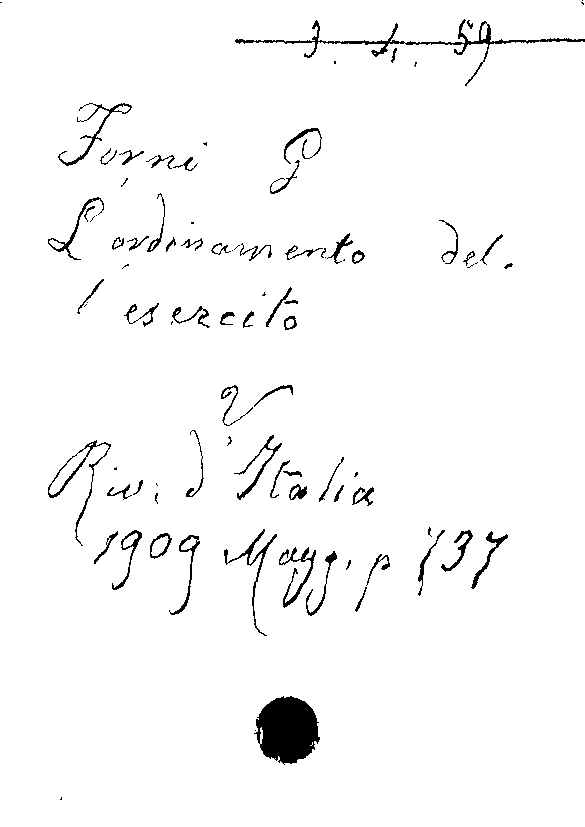 3. 4. 59
Forni G
L'ordinamento del-
l'esercito
V
Riv. d'Italia
1909 Magg. p 737